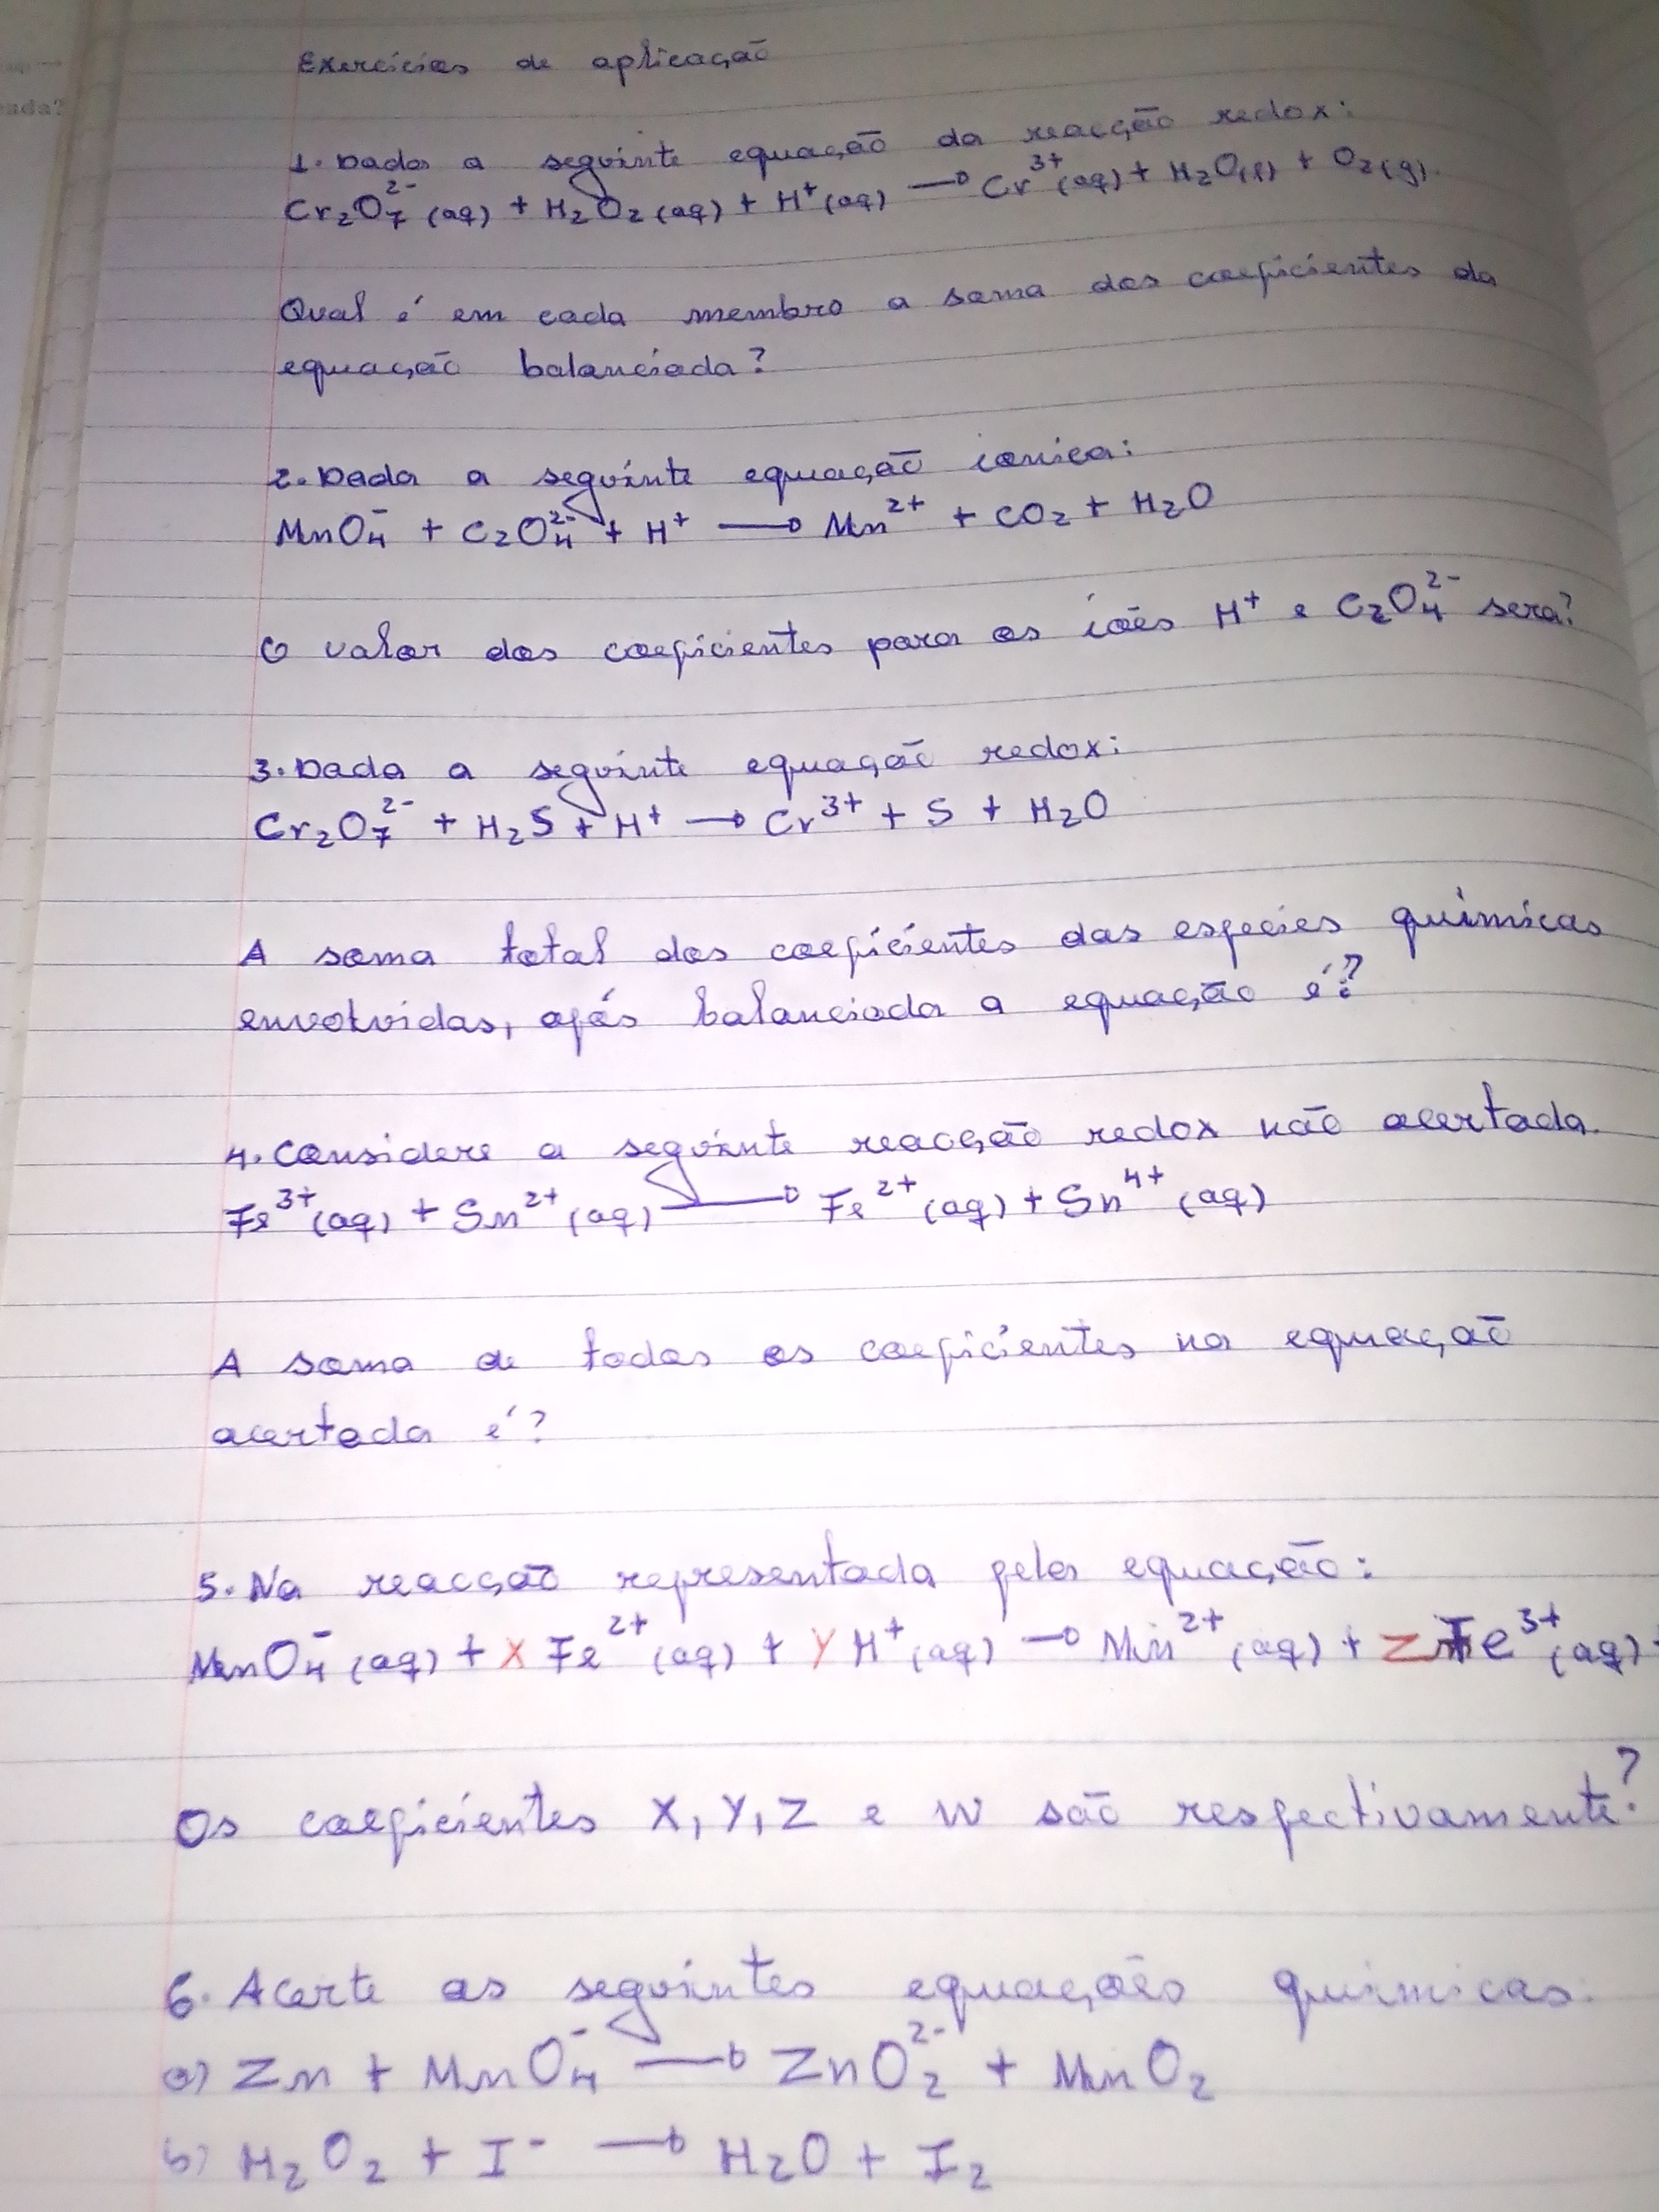 Exercícios de aplicação
1. Dada a seguinte equação da reacção redox:
Cr₂O₇²⁻(aq) + H₂O₂(aq) + H⁺(aq) → Cr³⁺(aq) + H₂O(l) + O₂(g).
Qual é em cada membro a soma dos coeficientes da
equação balanciada?
2. Dada a seguinte equação ionica:
MnO₄⁻ + C₂O₄²⁻ + H⁺ → Mn²⁺ + CO₂ + H₂O
O valor dos coeficientes para os iões H⁺ e C₂O₄²⁻ sera?
3. Dada a seguinte equação redox:
Cr₂O₇²⁻ + H₂S + H⁺ → Cr³⁺ + S + H₂O
A soma total dos coeficientes das especies químicas
envolvidas, após balanciada a equação é?
4. Considere a seguinte reacção redox não acertada.
Fe³⁺(aq) + Sn²⁺(aq) → Fe²⁺(aq) + Sn⁴⁺(aq)
A soma de todos os coeficientes na equação
acertada é?
5. Na reacção representada pela equação:
MnO₄⁻(aq) + X Fe²⁺(aq) + Y H⁺(aq) → Mn²⁺(aq) + Z Fe³⁺(aq) +
Os coeficientes X, Y, Z e W são respectivamente?
6. Acerte as seguintes equações químicas:
a) Zn + MnO₄⁻ → ZnO₂²⁻ + MnO₂
b) H₂O₂ + I⁻ → H₂O + I₂